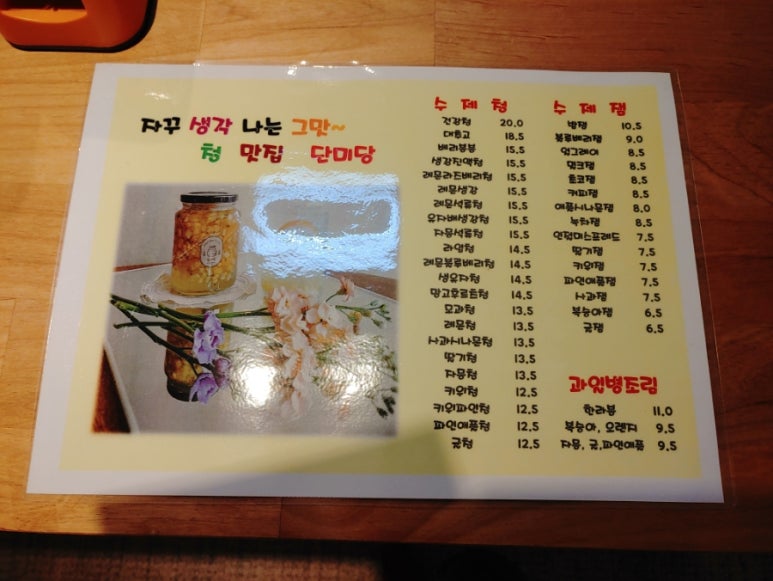 자꾸 생각 나는 그만~
청 맛집 단미당
수 제 청
건강청 20.0
대추고 18.5
베리봉봉 15.5
생강진액청 15.5
레몬라즈베리청 15.5
레몬생강 15.5
레몬석류청 15.5
유자배생강청 15.5
자몽석류청 15.5
라임청 14.5
레몬블루베리청 14.5
생유자청 14.5
망고후르트청 14.5
모과청 13.5
레몬청 13.5
사과시나몽청 13.5
딸기청 13.5
자몽청 13.5
키위청 12.5
키위파인청 12.5
파인애플청 12.5
귤청 12.5
수 제 잼
밤잼 10.5
블루베리잼 9.0
얼그레이 8.5
밀크잼 8.5
쵸코잼 8.5
커피잼 8.5
애플시나몽잼 8.0
녹차잼 8.5
인절미스프레드 7.5
딸기잼 7.5
키위잼 7.5
파인애플잼 7.5
사과잼 7.5
복숭아잼 6.5
귤잼 6.5
과일병조림
한라봉 11.0
복숭아, 오렌지 9.5
자몽, 귤, 파인애플 9.5